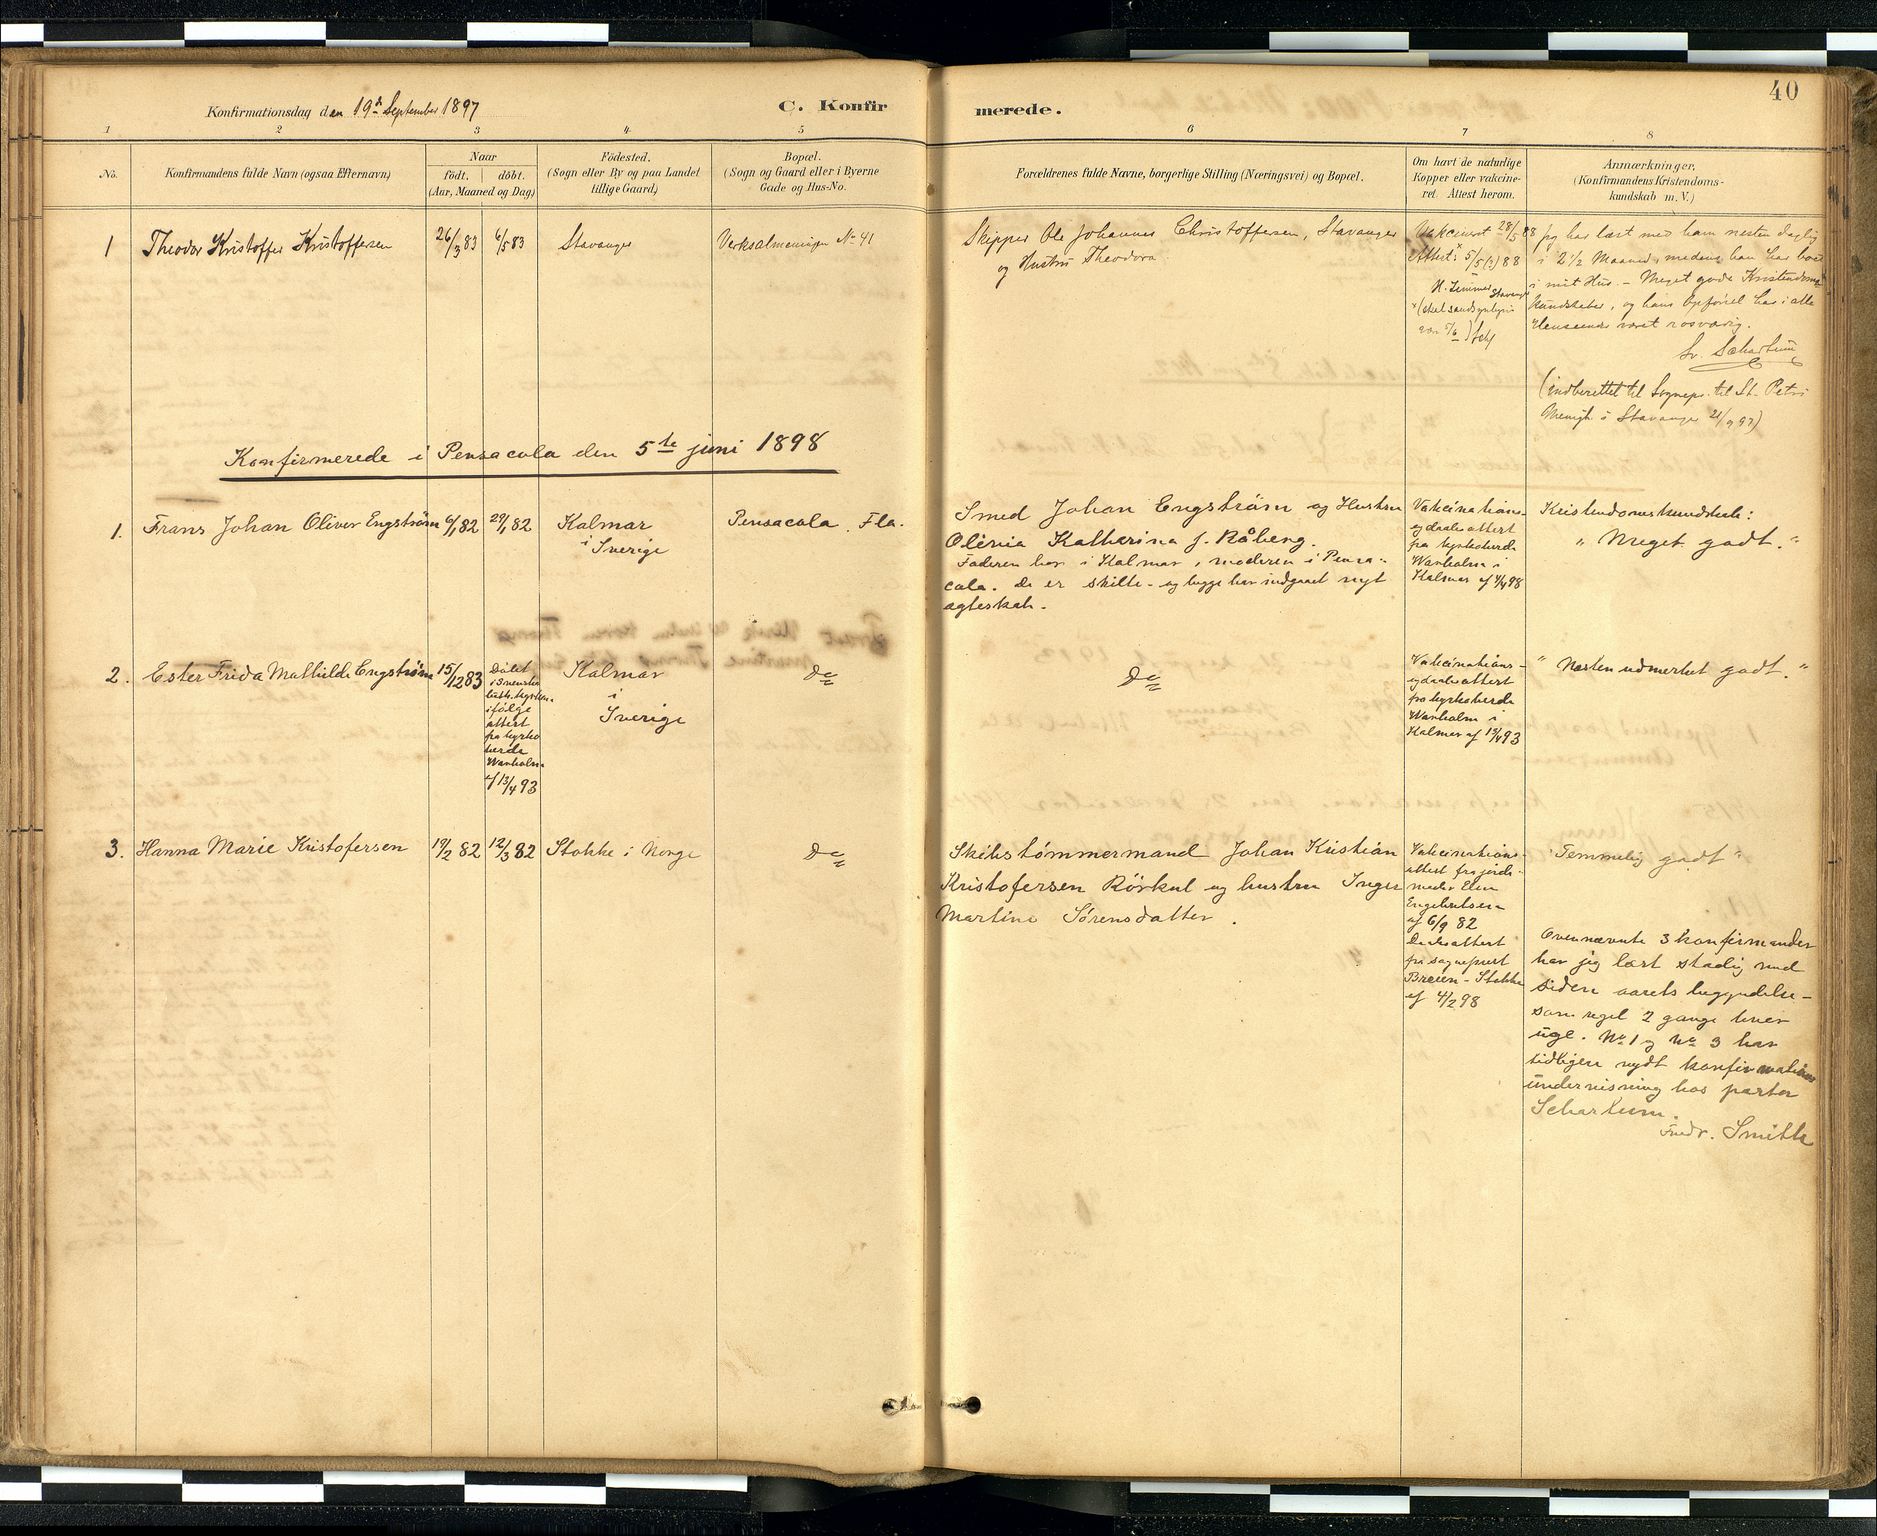 40
Konfirmationsdag den 19de September 1897
C. Konfirmerede.
1 2 3 4 5 6 7 8
No.
Konfirmandens fulde Navn (ogsaa Efternavn)
Naar
födt. döbt.
(Aar, Maaned og Dag)
Födested.
(Sogn eller By og paa Landet
tillige Gaard.)
Bopæl.
(Sogn og Gaard eller i Byerne
Gade og Hus-No.
Forældrenes fulde Navne, borgerlige Stilling (Næringsvei) og Bopæl.
Om havt de naturlige
Kopper eller vakcine-
ret. Attest herom.
Anmærkninger.
(Konfirmandens Kristendoms-
kundskab m. V.)
1 Theodor Kristoffer Kristoffersen
26/3 83
6/5 83
Stavanger
Verksalmeningen No 41
Skipper Ole Johannes Christoffersen, Stavanger
og Hustru Theodora
Vakcineret 28/5 88
Attest x 5/5 (?) 88
Stavanger
x (skal sandsynligvis
være 5/6)
Jeg har læst med ham nesten daglig
i 2 1/2 Maaned, medens han har boet
i mit Hus. - Meget gode Kristendoms-
kundskaber, og hans Opförsel har i alle
Henseender været rosværdig.
Schartum
(indberettet til Sognepr. til St. Petri
Menigh. i Stavanger 21/9 97)
Konfirmerede i Pensacola den 5te juni 1898
1. Frans Johan Oliver Engström
6/1 82
29/1 82
Kalmar
i Sverige
Pensacola. Fla.
Smed Johan Engström og Hustru
Katharina f. Råberg.
Faderen bor i Kalmar, moderen i Pensa-
cola. De er skilte - og begge har indgaaet nyt
ægteskab.
Vakcinations-
og daabsattest
fra kyrkoherde
Warholm i
Kalmar af 4/4 98
Kristendomskundskab:
" Meget godt. "
2. Ester Frida Mathilde Engström
15/12 83
Döbt
i Svenska
luth. kyrkan
ifölge
attest
fra kyrko
herde
Warholm
af 13/4 93
Kalmar
i
Sverige
Do
Do
Vakcinations-
og daabsattest
fra kyrkoherde
Warholm i
Kalmar af 13/4 93
" Næsten udmerket godt. "
3. Hanna Marie Kristofersen
19/2 82
12/3 82
Stokke i Norge
Do
Skibstömmermand Johan Kristian
Kristofersen Rörkul og hustru Inger
Martine Sörensdatter.
Vakcinations-
attest fra jorde-
moder Elen
Engebretsen
af 6/9 82
Daabsattest
fra sogneprest
Breien - Stokke
af 4/2 98
"Temmelig godt"
Ovennævnte 3 konfirmander
har jeg læst stadig med
siden aarets begyndelse -
som regel 2 gange hver
uge. No 1 og No 3 har
tidligere nydt konfirmations
undervisning hos pastor
Schartum.
Fredr. Smith